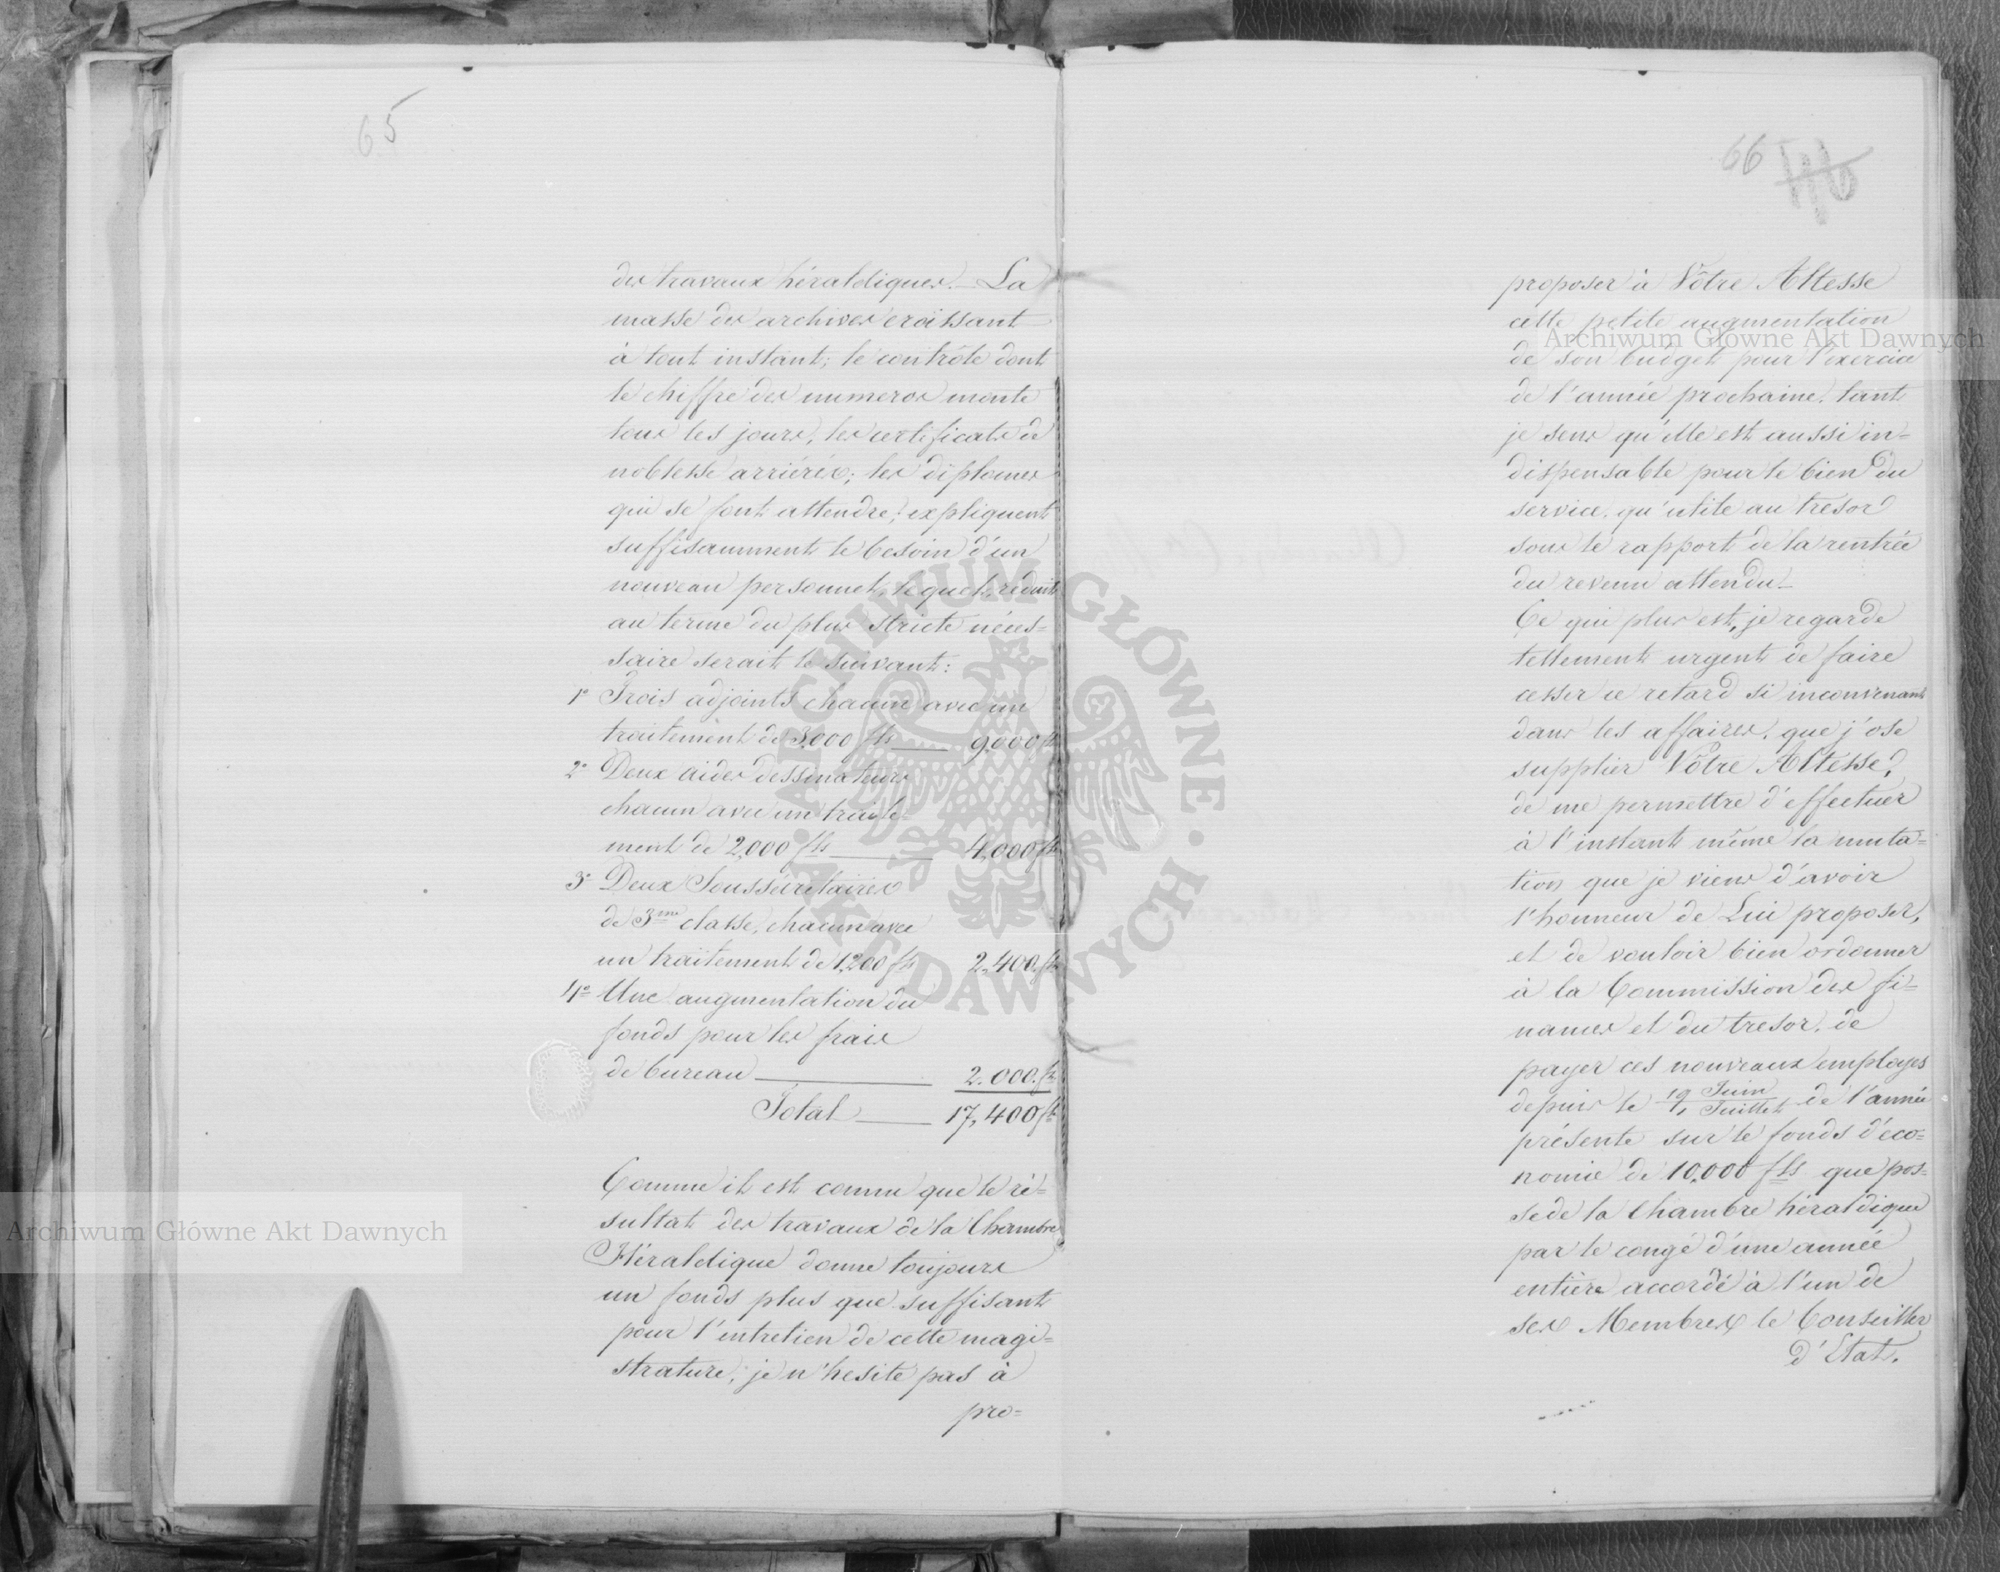 65
des travaux héraldiques. La
masse des archives croissant
à tout instant; le contrôle dont
le chiffre des numeros monte
tous les jours, les certificats de
noblesse arriérés; les diplomes
qui se font attendre; expliquent
suffisamment le besoin d'un
nouveau personnel, lequel, reduit
au terme du plus stricte néces=
saire serait le suivant:
1º Trois adjoints chacun avec un
traitement de 3,000 fls — 9,000 fls
2º Deux aides dessinateurs
chacun avec un traite-
ment de 2,000 fls — 4,000 fls
3º Deux Soussécretaires
de 3me classe, chacun avec
un traitement de 1,200 fls 2,400 fls
4º Une augmentation du
fonds pour les frais
de bureau — 2.000 fls
Total — 17,400 fls
Comme il est connu que le ré=
sultat des travaux de la Chambre
Héraldique donne toujours
un fonds plus que suffisant
pour l'entretien de cette magi=
strature; je n'hesite pas à
pro=
66
proposer à Vôtre Altesse
cette petite augmentation
de son budget pour l'exercice
de l'année prochaine, tant
je sens qu'elle est aussi in=
dispensable pour le bien du
service, qu'utile au tresor
sous le rapport de la rentrée
du revenu attendu.
Ce qui plus est, je regarde
tellement urgent de faire
cesser ce retard si inconvenant
dans les affaires, que j'ose
supplier Vôtre Altesse,
de me permettre d'effectuer
à l'instant même la muta=
tion que je viens d'avoir
l'honneur de Lui proposer,
et de vouloir bien ordonner
à la Commission des fi=
nances et du tresor, de
payer ces nouveaux employes
depuis le 19/1 Juin/Juillet de l'année
présente sur le fonds d'éco=
nomie de 10,000 fls que pos=
sede la Chambre héraldique
par le congé d'une année
entière accordé à l'un de
ses Membres le Conseiller
d'Etat.
Archiwum Główne Akt Dawnych
Archiwum Główne Akt Dawnych
ARCHIWUM GŁÓWNE · AKT DAWNYCH ·